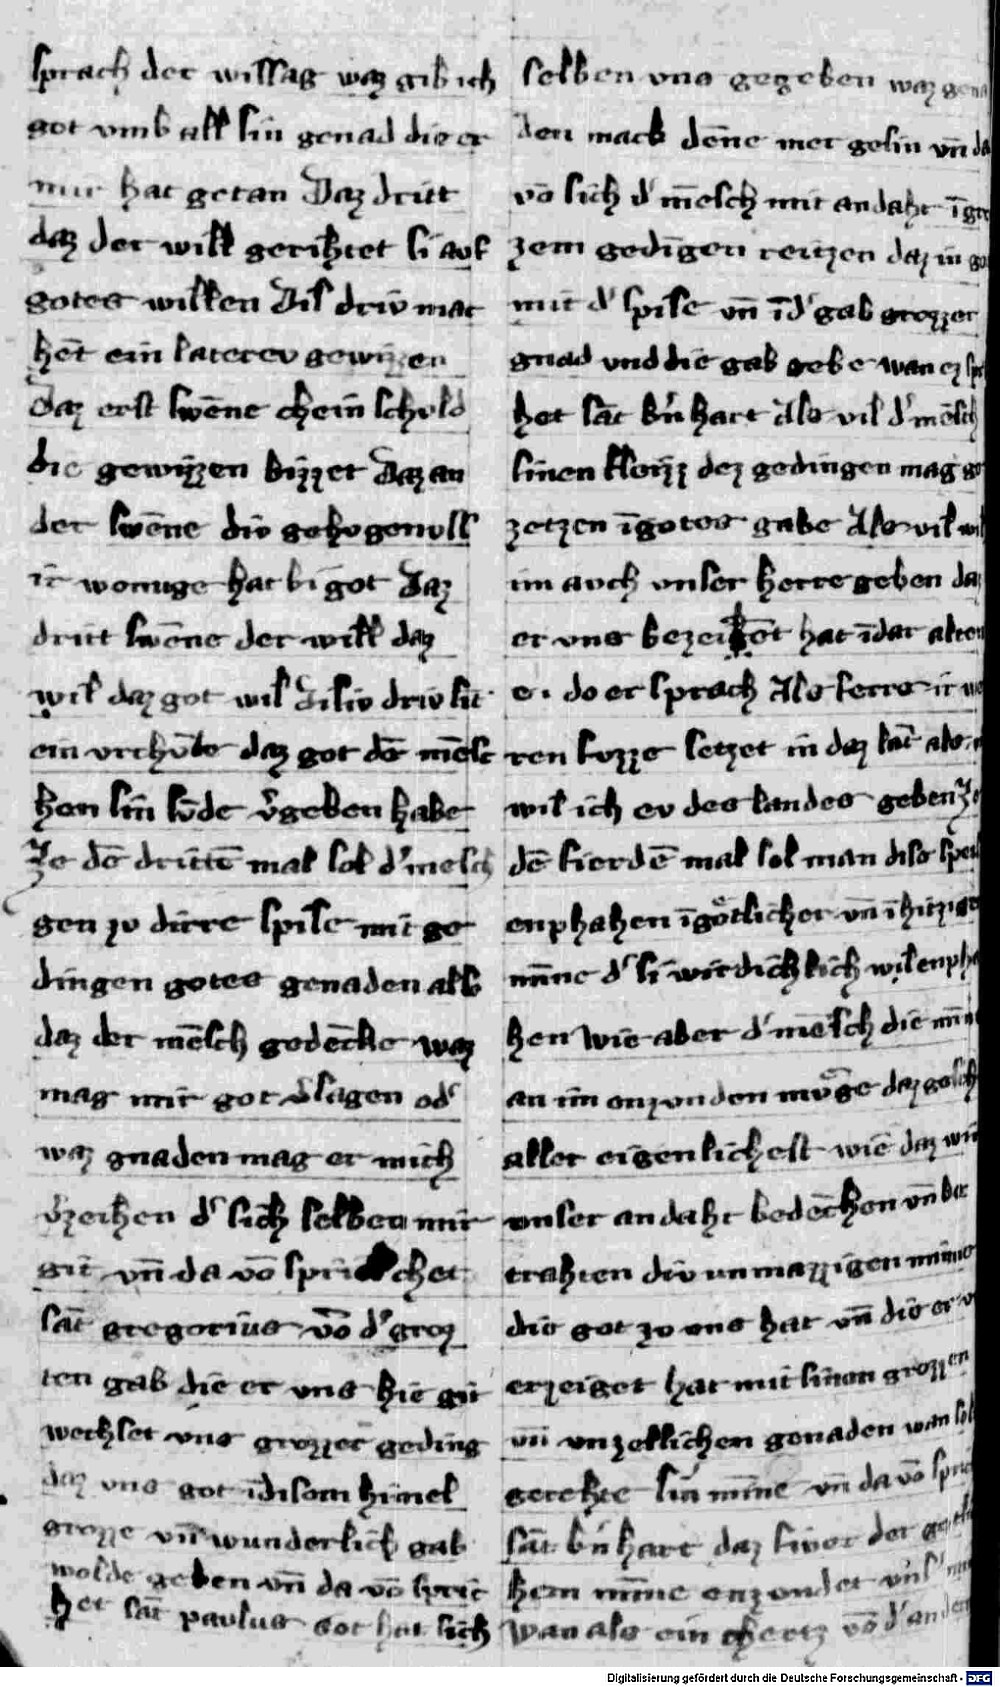 sprach der wissag waz gib ich
got vmb all sin genad die er
mir hat getan Daz dritt
daz der will gerihtet si auf
gotes willen Disiv driv mac
hēt ein laterev gewizzen
Daz erst swēne chein schuld
die gewizzen bizzet Daz an
der swēne div gehvgenvss
ir wonuge hat bi got Daz
dritt swēne der will daz
wil daz got wil Disiv driv sit
ein vrchvͤde daz got dē mēsc
hen sin sv̄de v̓geben habe
Ze dē drittē mal sol d̓ mēsch
gen zv dirre spise mit ge
dingen gotes genaden als
daz der mēsch gedēcke waz
mag mir got v̓sagen od̓
waz gnaden mag er mich
v̓zeihen d̓ sich selben mir
git vn̄ da vō sprichet
sāt gregorius vō d̓ groz
ten gab die er vns hie git
wechset vns grozzer geding
daz vns got ī disem himel
grozze vn̄ wunderlich gab
wolde geben vn̄ da vō spric
het sāt pavlus got hat sich
selben vns gegeben waz gena
den mack dēne mer gesin vn̄ da
vō sich d̓ mēsch mit andaht ī gro
zem gedīgen reitzen daz in got
mit d̓ spise vn̄ ī d̓ gab grozzer
gnad vnd die gab gebe wan ez spri
het sāt bn̓hart Als vil d̓ mēsch
sinen fleizz dez gedingen mag ge
zetzen ī gotes gabe Als vil wil
im avch vnser herre geben daz
er vns bezeihēt hat ī dar alten
e . do er sprach Als ferre ir
ren fvzze setzet in daz lāt als
wil ich ev des landes geben Ze
dē fierdē mal sol man dise speis
enphahen ī gotlicher vn̄ ī hitziger
mīne d̓ si wirdichlich wil enpha
hen Wie aber d̓ mēsch die mīn
an im enzvnden mvͦge daz gesch
aller eigenlichest wie daz wir
vnser andaht bedēchen vn̄ be
trahten div unmazzigen minne
die got zv vns hat vn̄ die er v
erzeiget hat mit sinen grozzen
vn̄ vnzellichen genaden wan sol
gerehte sin mīne vn̄ da vō spric
sāt bn̓hart daz fiver der gotli
hem mīne enzvndet vns
wan als ein chertz vō d̓ andern
Digitalisierung gefördert durch die Deutsche Forschungsgemeinschaft - DFG